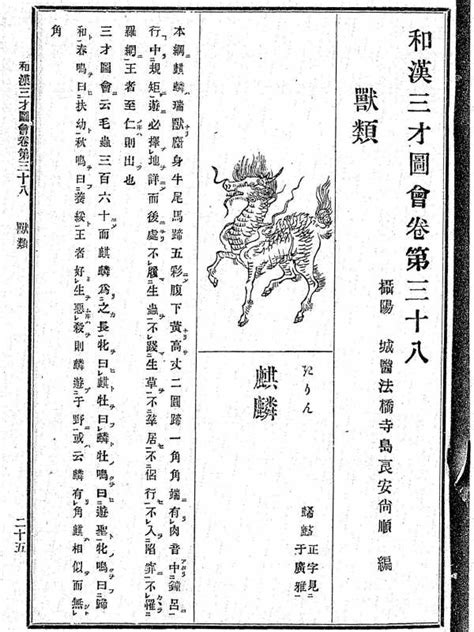 和漢三才圖會卷第三十八
攝陽 城醫法橋寺島良安尚順 編
獸類
きりん
麒麟
正字見
于廣雅
本綱麒麟瑞獸麕身牛尾馬蹄五彩腹下黃高丈二圓蹄一角角端有肉音中鐘呂
行中規矩遊必擇地詳而後處不履生蟲不踐生草不羣居不侶行不入陷穽不罹
羅網王者至仁則出也
三才圖會云毛蟲三百六十而麒麟爲之長牝曰麒牡曰麟牡鳴曰遊聖牝鳴曰歸
和春鳴曰扶幼秋鳴曰養綏王者好生惡殺則麟遊于野或云麟有角麒相似而無
角
和漢三才圖會卷第三十八 獸類 二十五